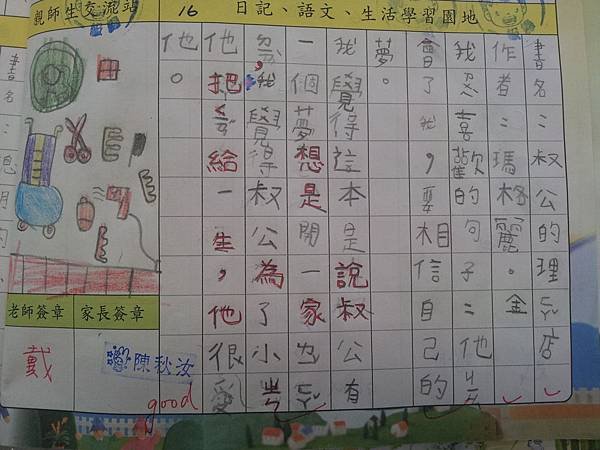 親師生交流站
16 日記、語文、生活學習園地
書名：叔公的理ㄈㄚˇ店
作者：瑪格麗。金
我 喜歡的句子：他
會了我，要相信自己的
夢。
我覺得這本是說叔公有
一個夢想是開一家
，我覺得叔公為了小
他把 給一生，他很愛
他。
老師簽章
家長簽章
戴
陳秋汝
good